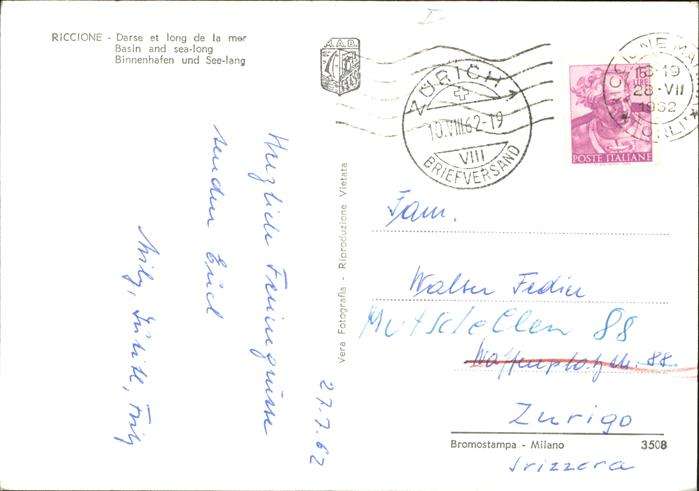 RICCIONE - Darse et long de la mer
Basin and sea-long
Binnenhafen und See-lang
M.A.B.
ZÜRICH 1
10.VIII.62-19
VIII
BRIEFVERSAND
RICCIONE MA
18-19
28-VII
1962
FORLI
15
LIRE
POSTE ITALIANE
Herzliche Feriengrüsse
senden Euch
27.7.62
Vera Fotografia - Riproduzione Vietata
Fam.
Walter Fedier
Mutschellen 88
Waffenplatzstr. 88.
Zurigo
Bromostampa - Milano
3508
Svizzera